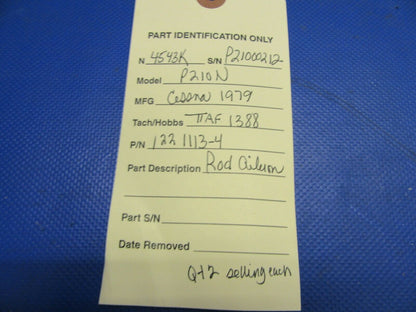 PART IDENTIFICATION ONLY
N 4543K S/N P21000212
Model P210N
MFG Cessna 1979
Tach/Hobbs TTAF 1388
P/N 1221113-4
Part Description Rod Aileron
Part S/N
Date Removed
Qt 2 selling each